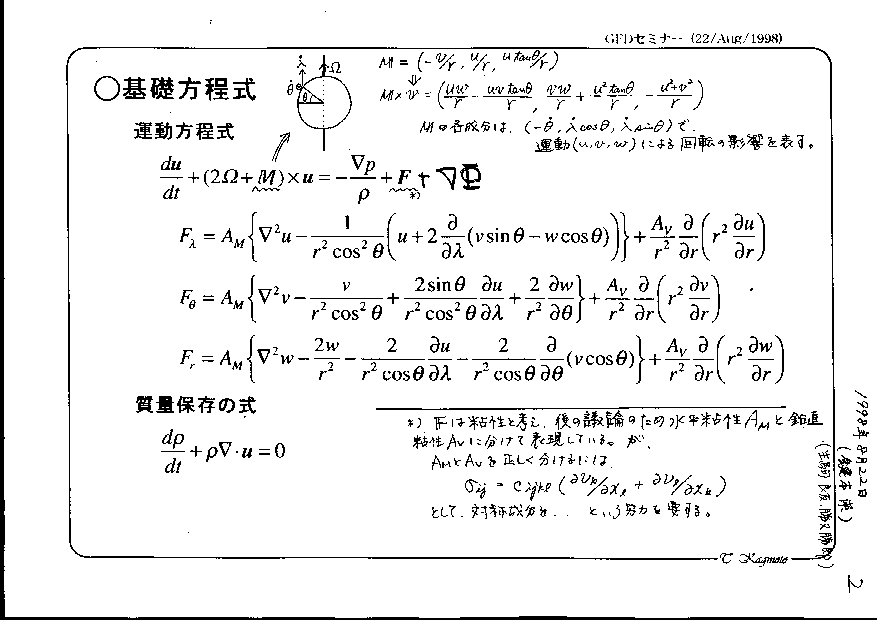 GFDセミナー (22/Aug/1998)
○基礎方程式
λ̇ Ω
θ̇ θ
M = (-v/r, u/r, u tanθ/r)
⇓
M×v = (uw/r - uv tanθ/r, vw/r + u² tanθ/r, -(u²+v²)/r)
Mの各成分は、(-θ̇, λ̇cosθ, λ̇sinθ)で、
運動(u,v,w)による回転の影響を表す。
運動方程式
du/dt + (2Ω + M) × u = -∇p/ρ + F + ∇Φ
*)
F_λ = A_M{∇²u - 1/(r² cos² θ) (u + 2 ∂/∂λ (v sin θ - w cos θ))} + A_V/r² ∂/∂r (r² ∂u/∂r)
F_θ = A_M{∇²v - v/(r² cos² θ) + 2 sin θ/(r² cos² θ) ∂u/∂λ + 2/r² ∂w/∂θ} + A_V/r² ∂/∂r (r² ∂v/∂r)
F_r = A_M{∇²w - 2w/r² - 2/(r² cos θ) ∂u/∂λ - 2/(r² cos θ) ∂/∂θ (v cos θ)} + A_V/r² ∂/∂r (r² ∂w/∂r)
質量保存の式
dρ/dt + ρ∇·u = 0
*) Fは粘性と考え、後の議論のため水平粘性A_Mと鉛直
粘性A_Vに分けて表現している。が、
A_MとA_Vを正しく分けるには、
σij = Cijkl (∂v_k/∂x_l + ∂v_l/∂x_k)
として、対称成分を... という努力を要する。
T Kagimoto
1998年8月22日
2